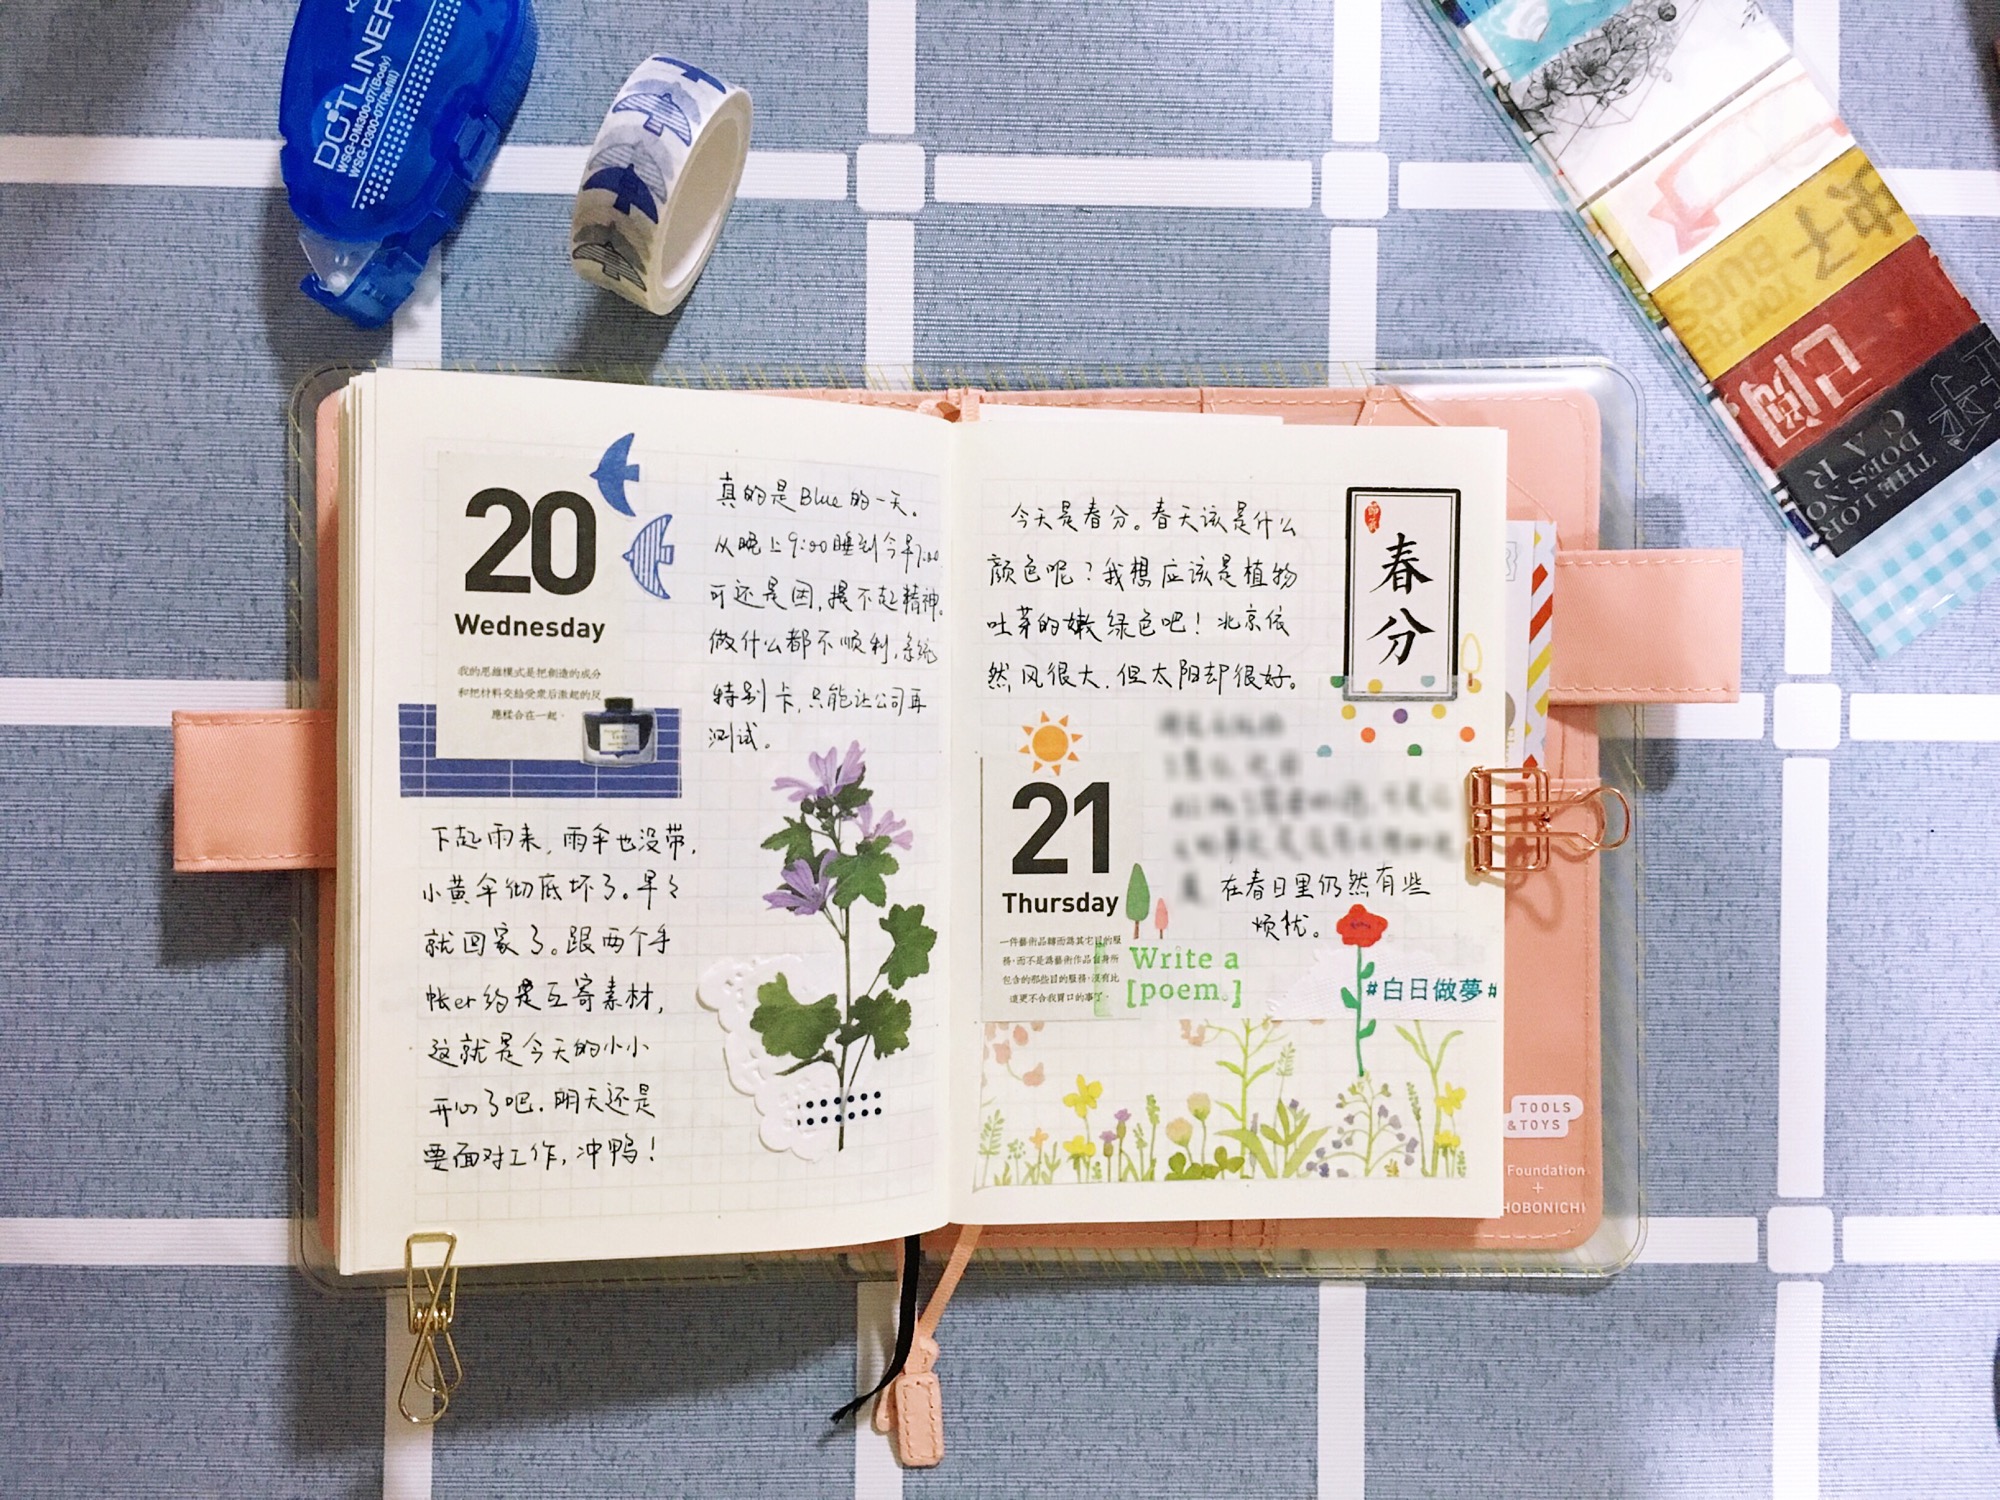 DOTLINER
WSG-DM300-07(Body)
WSG-D300-07(Refill)
20
Wednesday
我的思維模式是把創造的成分
和把材料交給受衆后激起的反
應糅合在一起。
真的是Blue的一天。
从晚上9:00睡到今早7:00
可还是困,提不起精神。
做什么都不顺利,系统
特别卡,只能让公司再
测试。
下起雨来,雨伞也没带,
小黄伞彻底坏了。早早
就回家了。跟两个手
帐er约是互寄素材,
这就是今天的小小
开心了吧.明天还是
要面对工作,冲鸭!
今天是春分。春天该是什么
颜色呢?我想应该是植物
吐芽的嫩绿色吧!北京依
然风很大,但太阳却很好。
春分
21
Thursday
一件藝術品轉而爲其它目的服
務,而不是爲藝術作品自身所
包含的那些目的服務,沒有比
這更不合我胃口的事了。
在春日里仍然有些
烦忧。
Write a
[poem。]
#白日做夢#
TOOLS
&TOYS
Foundation
+
HOBONICHI
已阅